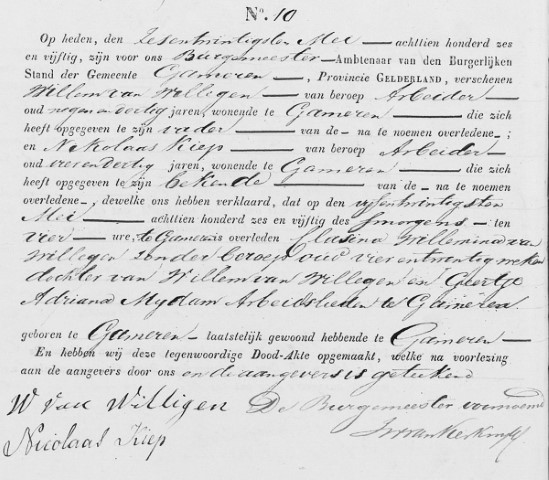 No. 10
Op heden, den Zesentwintigsten Mei achttien honderd zes
en vijftig, zijn voor ons Burgemeester Ambtenaar van den Burgerlijken
Stand der Gemeente Gameren, Provincie GELDERLAND, verschenen
Willem van Willigen van beroep Arbeider
oud negen en dertig jaren, wonende te Gameren die zich
heeft opgegeven te zijn vader van de na te noemen overledene;
en Nikolaas Kiep van beroep Arbeider
oud dertig jaren, wonende te Gameren die zich
heeft opgegeven te zijn bekende van de na te noemen
overledene, dewelke ons hebben verklaard, dat op den vijfentwintigsten
Mei achttien honderd zes en vijftig des smorgens ten
vier ure, te Gameren is overleden Willemina van
Willegen zonder beroep oud vier en twintig weken
dochter van Willem van Willegen en Geertje
Adriana Mydam Arbeidslieden te Gameren
geboren te Gameren laatstelijk gewoond hebbende te Gameren
En hebben wij deze tegenwoordige Dood-Akte opgemaakt, welke na voorlezing
aan de aangevers door ons en de aangevers is getekend
W van Willigen De Burgemeester voornoemd
Nicolaas Kiep